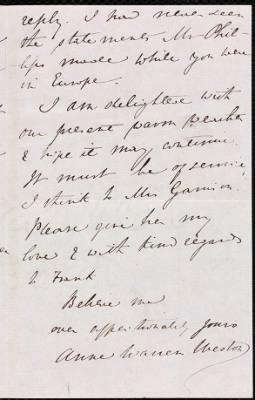 reply. I had never seen
the statements Mr Phil-
lips made while you were
in Europe.
I am delighted with
our present warm weather
& hope it may continue.
It must be of service,
I think to Mrs Garrison.
Please give her my
love & with kind regards
to Frank
Believe me
ever affectionately yours
Anne Warren Weston